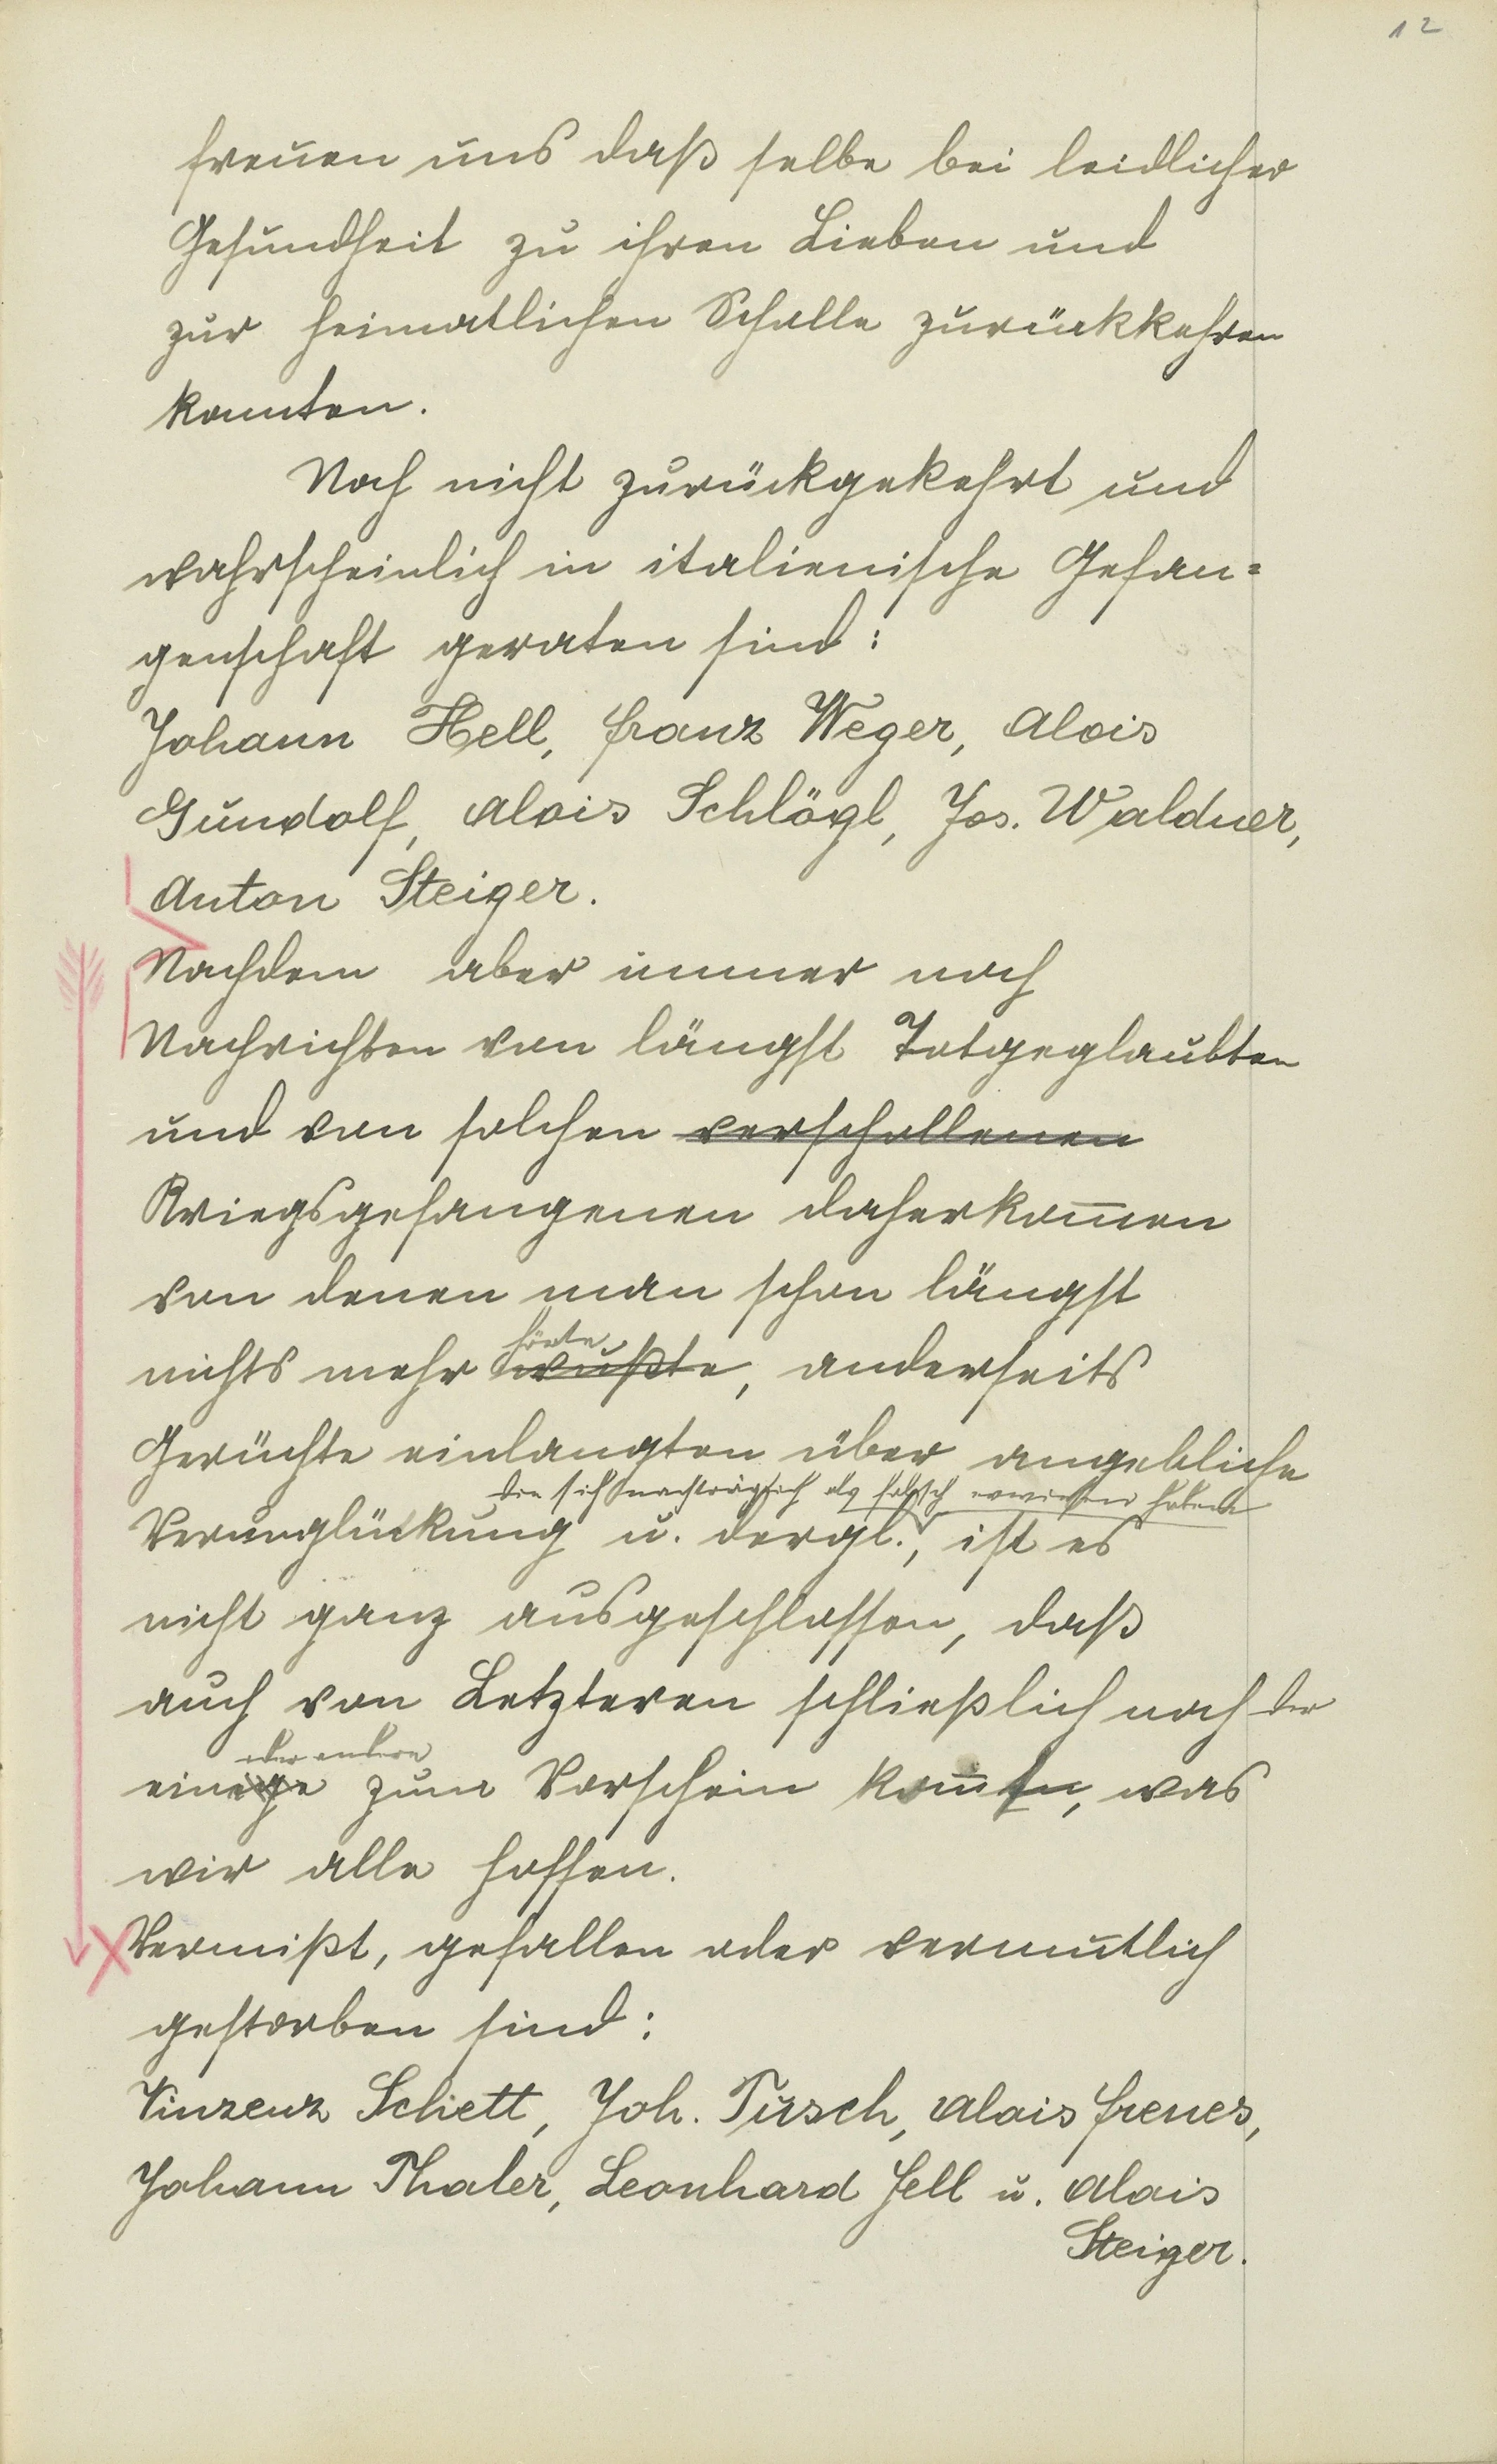 12
freuen uns daß selbe bei leidlicher
Gesundheit zu ihren Lieben und
zur heimatlichen Scholle zurückkehren
konnten.
Noch nicht zurückgekehrt und
wahrscheinlich in italienische Gefan=
genschaft geraten sind:
Johann Hell, Franz Weger, Alois
Gundolf, Alois Schlögl, Jos. Waldner,
Anton Steiger.
Nachdem aber immer noch
Nachrichten von längst Totgeglaubten
und von solchen verschollenen
Kriegsgefangenen daherkom̄en
von denen man schon längst
hörte
nichts mehr wußte, anderseits
Gerüchte einlangten über angebliche
die sich nachträglich als falsch erwiesen haben
Verunglückung u. dergl., ist es
nicht ganz ausgeschlossen, daß
auch von Letzteren schließlich noch der
oder andere
einige zum Vorschein kom̄en, was
wir alle hoffen.
Vermißt, gefallen oder vermutlich
gestorben sind:
Vinzenz Schett, Joh. Tusch, Alois Frenes,
Johann Thaler, Leonhard Fell u. Alois
Steiger.